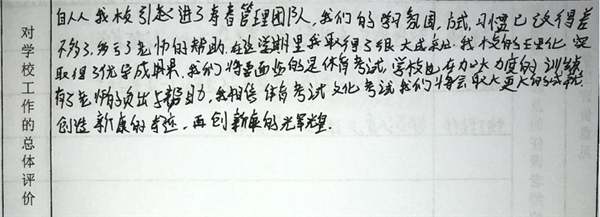 对学校工作的总体评价
自从我校引进了寿春管理团队，我们的学习氛围，应试，习惯已改得差
不多了，多亏了老师的帮助，在这学期里我取得了很大成就，我校的生地化实
取得了优异成果，我们将要面临的是体育考试，学校也在加大力度的训练
有了老师的付出与帮助，我相信体育考试文化考试我们将会取大更大的成就
创造新康的奇迹，再创新康的光辉煌.